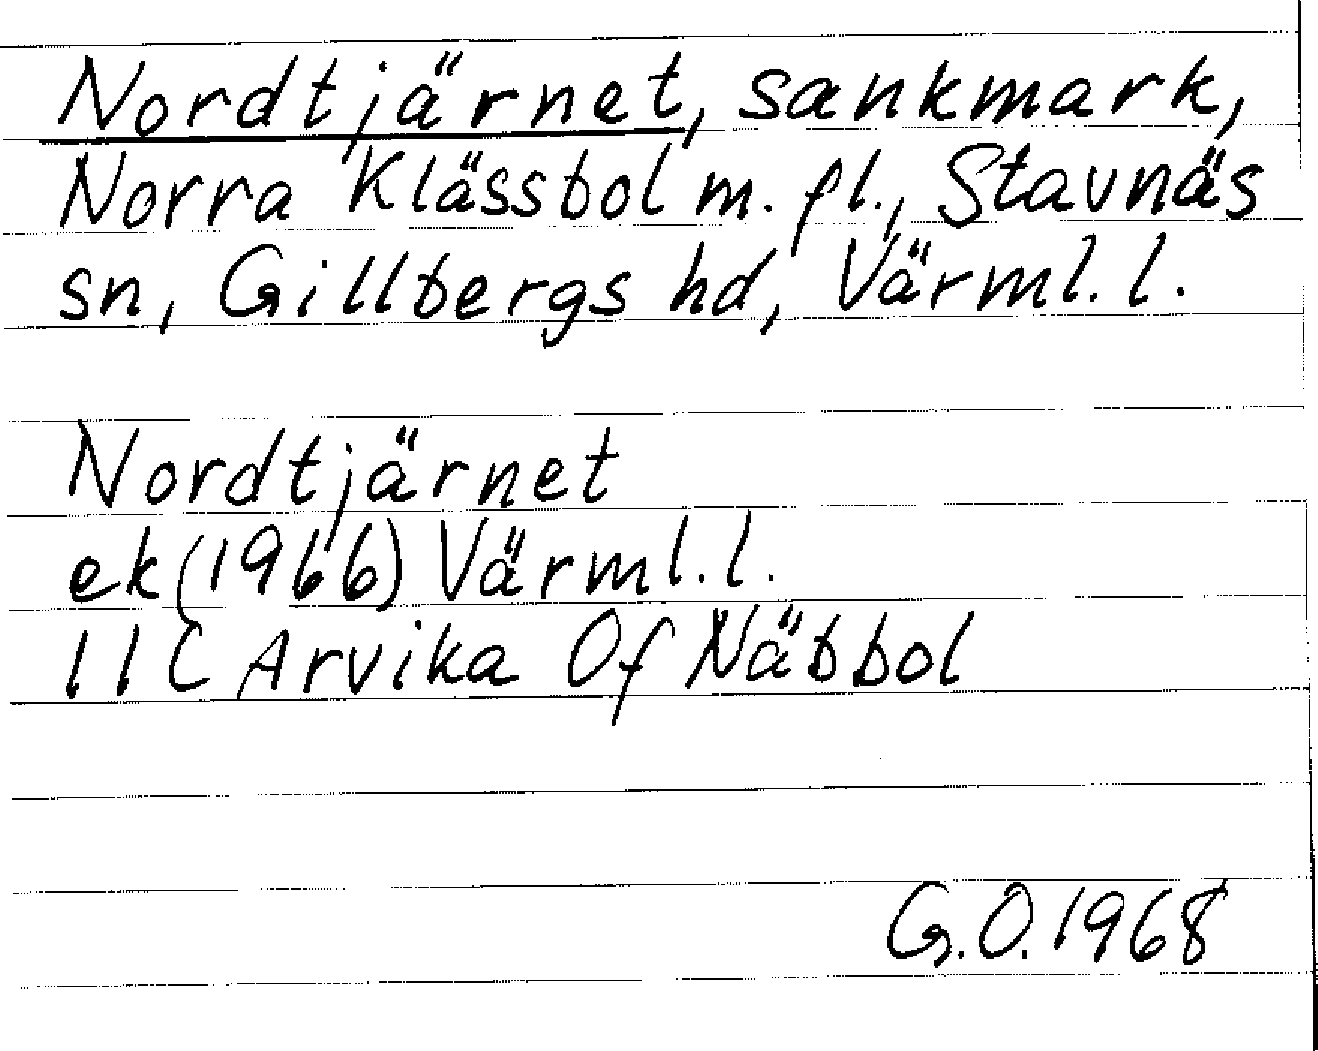 Nordtjärnet, sankmark,
Norra Klässbol m. fl., Stavnäs
sn, Gillbergs hd, Värml. l.
Nordtjärnet
ek (1966) Värml. l.
11C Arvika 0f Näbbol
G.O. 1968